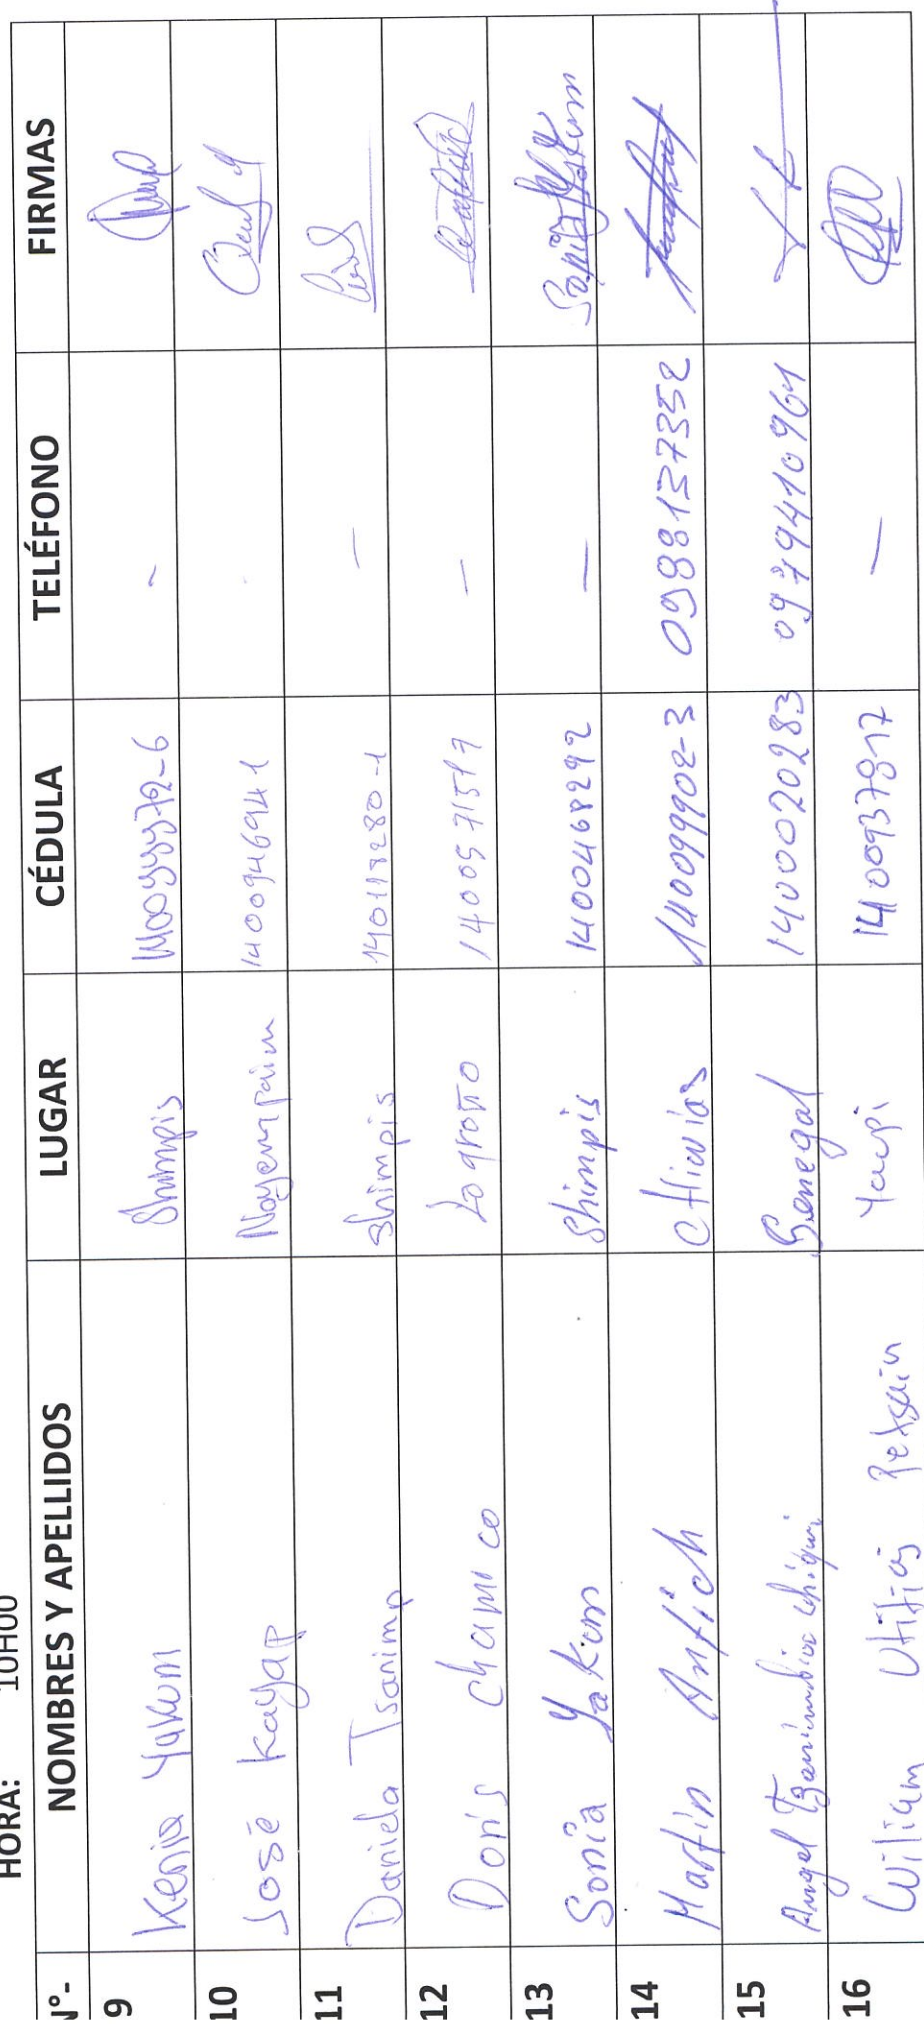 HORA: 10H00
N°.- NOMBRES Y APELLIDOS LUGAR CÉDULA TELÉFONO FIRMAS
9 Kenia Yakum Shimpis -
10 José Kayap Nayempaim 1400946944-1
11 Daniela Tsanimp Shimpis 140118280-1 —
12 Doris Chamico Logroño 1400571517 —
13 Sonia Yakum Shimpis 1400468292 —
14 Martin Antich Chiviás 140099902-3 0988137352
15 Angel Senegal 1400020283 0979410961
16 Wiliam Utitiaj Petsain Yaupi 1400937817 —